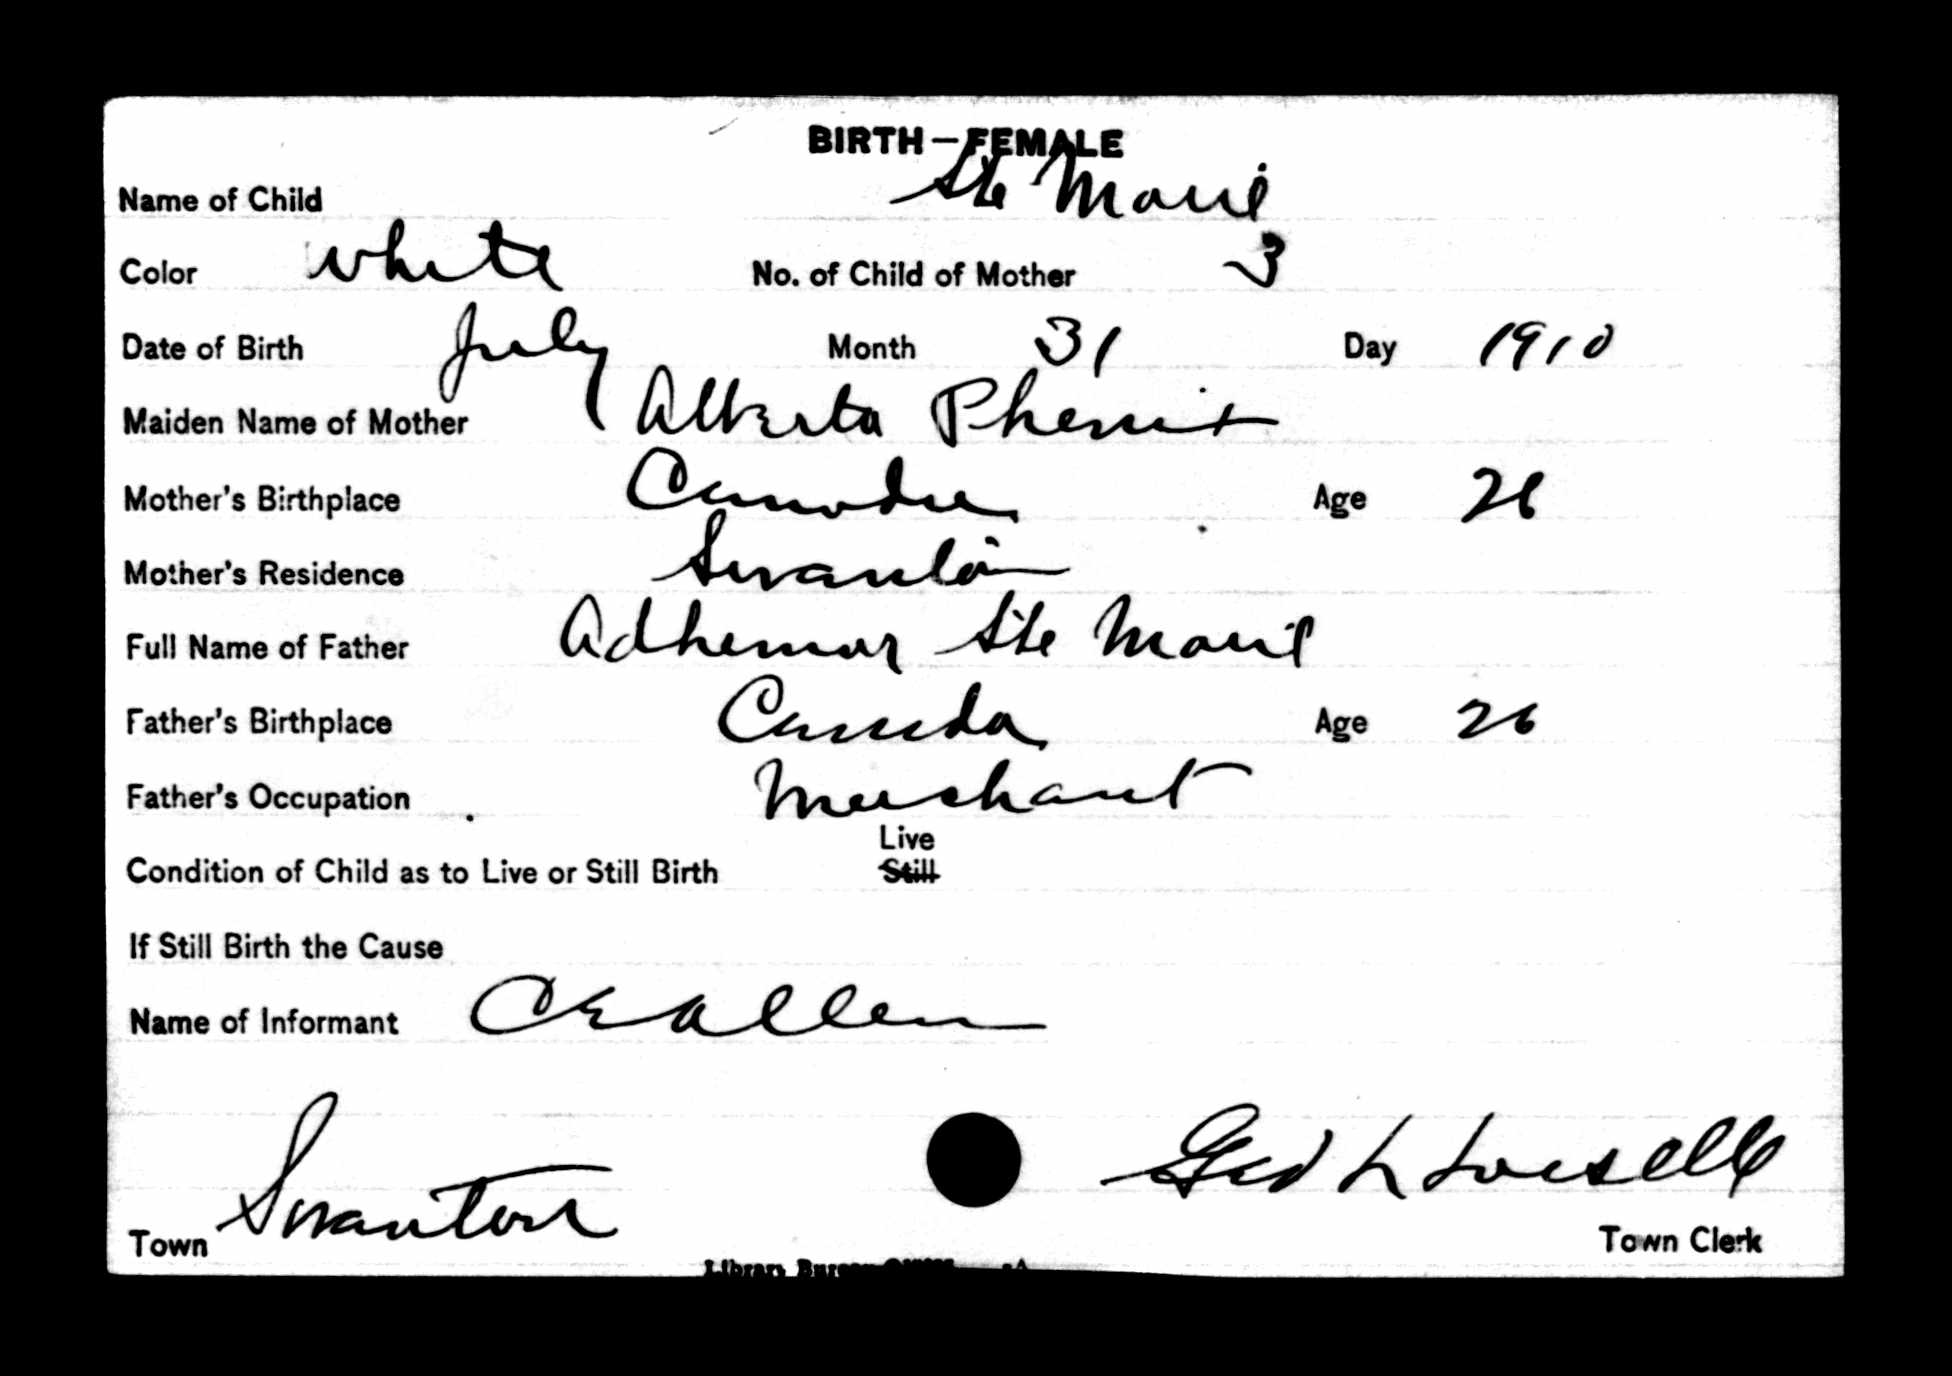 BIRTH—FEMALE
Name of Child Ste Marie
Color White No. of Child of Mother 3
Date of Birth July Month 31 Day 1910
Maiden Name of Mother Alberta Phenix
Mother's Birthplace Canada Age 26
Mother's Residence Swanton
Full Name of Father Adhemar Ste Marie
Father's Birthplace Canada Age 26
Father's Occupation Merchant
Live
Condition of Child as to Live or Still Birth Still
If Still Birth the Cause
Name of Informant C E Allen
Town Swanton Geo L Loiselle
Town Clerk
Library Bureau